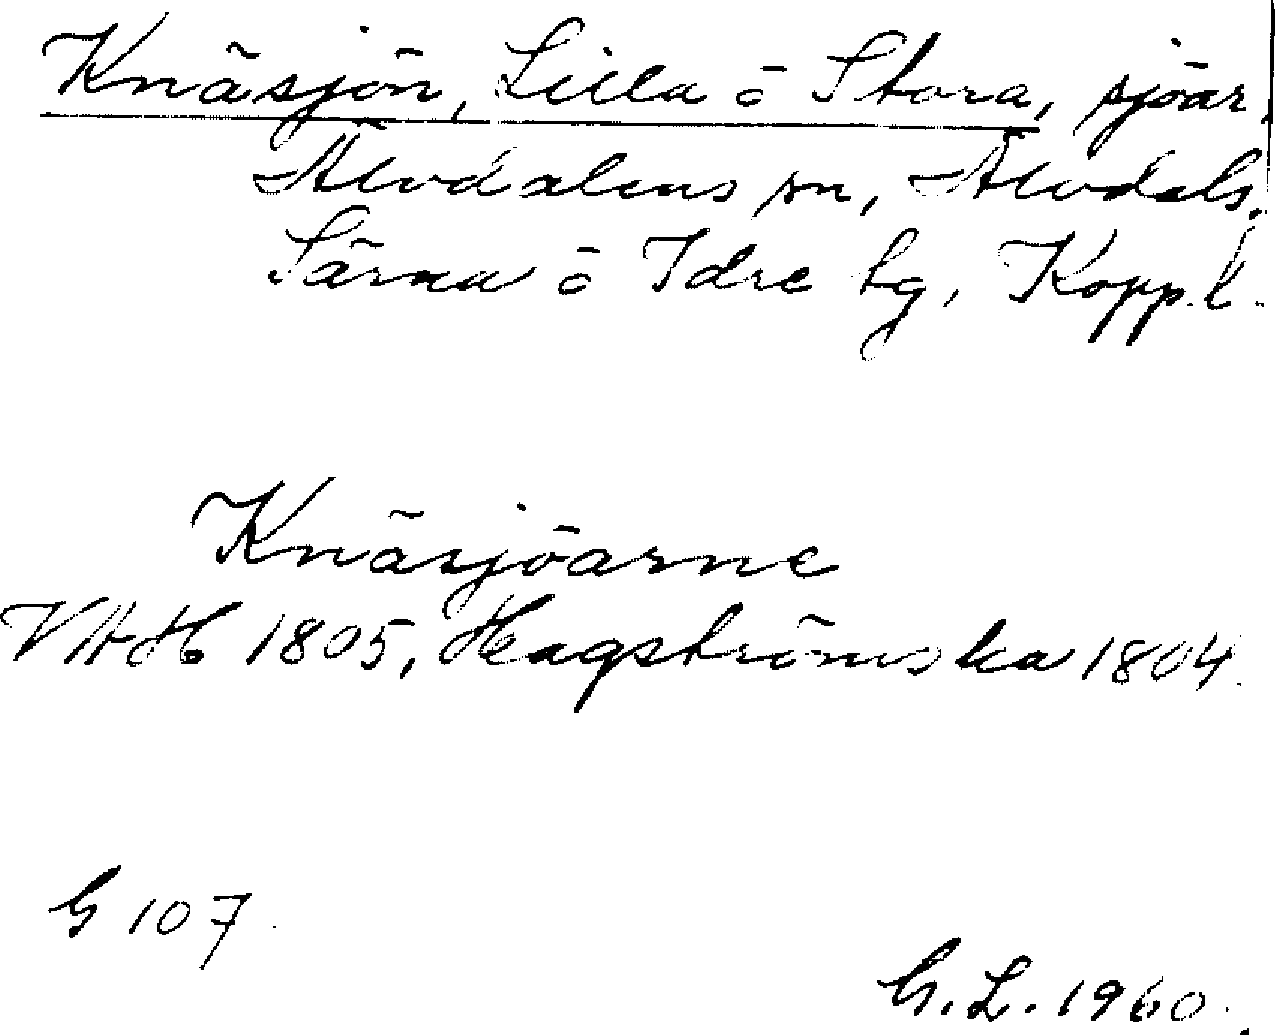 Knäsjön, Lilla o Stora, sjöar
Älvdalens sn, Älvdals,
Särna o Idre tg, Kopp.l.
Knäsjöarne
VAH 1805, Hagströmska 1804.
G 107.
G.L. 1960.